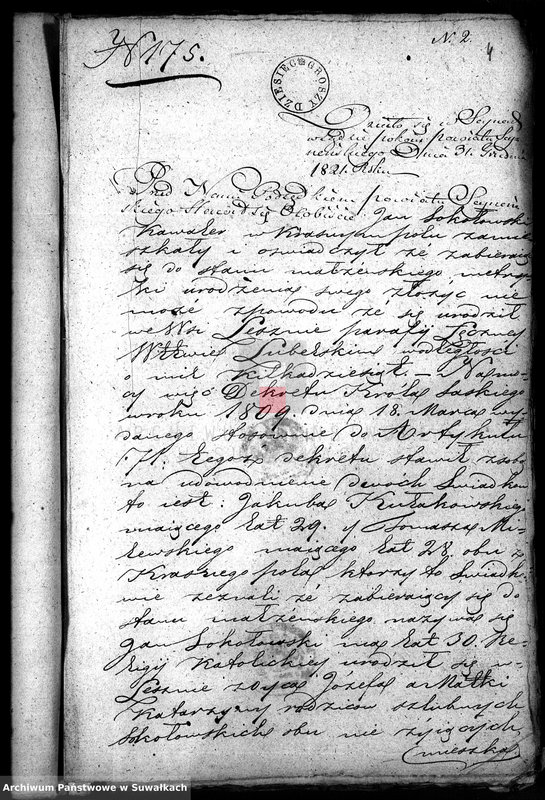 N 175.
N. 2.
4
DZIESIĘC GROSZY
Działo się w Seynach
w Sądzie pokoiu powiatu Sey
neńskiego Dnia 31. Grudnia
1821. Roku
Przed Nami Podsędkiem powiatu Seyneń
skiego Stawił się Osobiście Jan Sokołowski
Kawaler w Krasnympolu zamie
szkały i oświadczył że zabieraiąc
się do stanu małżeńskiego metry
ki urodzenia swego złożyć nie
może zpowodu że się urodził
we Wsi Lesznie parafij Łęczney
Wztwie Lubelskim wodległości
o mil kilkadziesiąt. —
cy więc Dekretu Króla Saskiego
wroku 1809. dnia 18. Marca wy
danego stosownie do Artykułu
71. tegoż dekretu stawił
na udowodnienie dwoch Swiadkow
to iest: Jakuba Kułakowskiego
maiącego lat 29. y Tomasza Mi
lewskiego maiącego lat 28. obu z
Krasnego pola ktorzy to Swiadko
wie zeznali że zabieraiący się do
stanu małżeńskiego nazywa się
Jan Sokołowski ma lat 30. Re
ligij Katolickiey urodził się w
Lesznie z oyca Józefa a Matki
Katarzyny rodziców szlubnych
Sokołowskich obu nie żyiących
mieszka
Archiwum Państwowe w Suwałkach